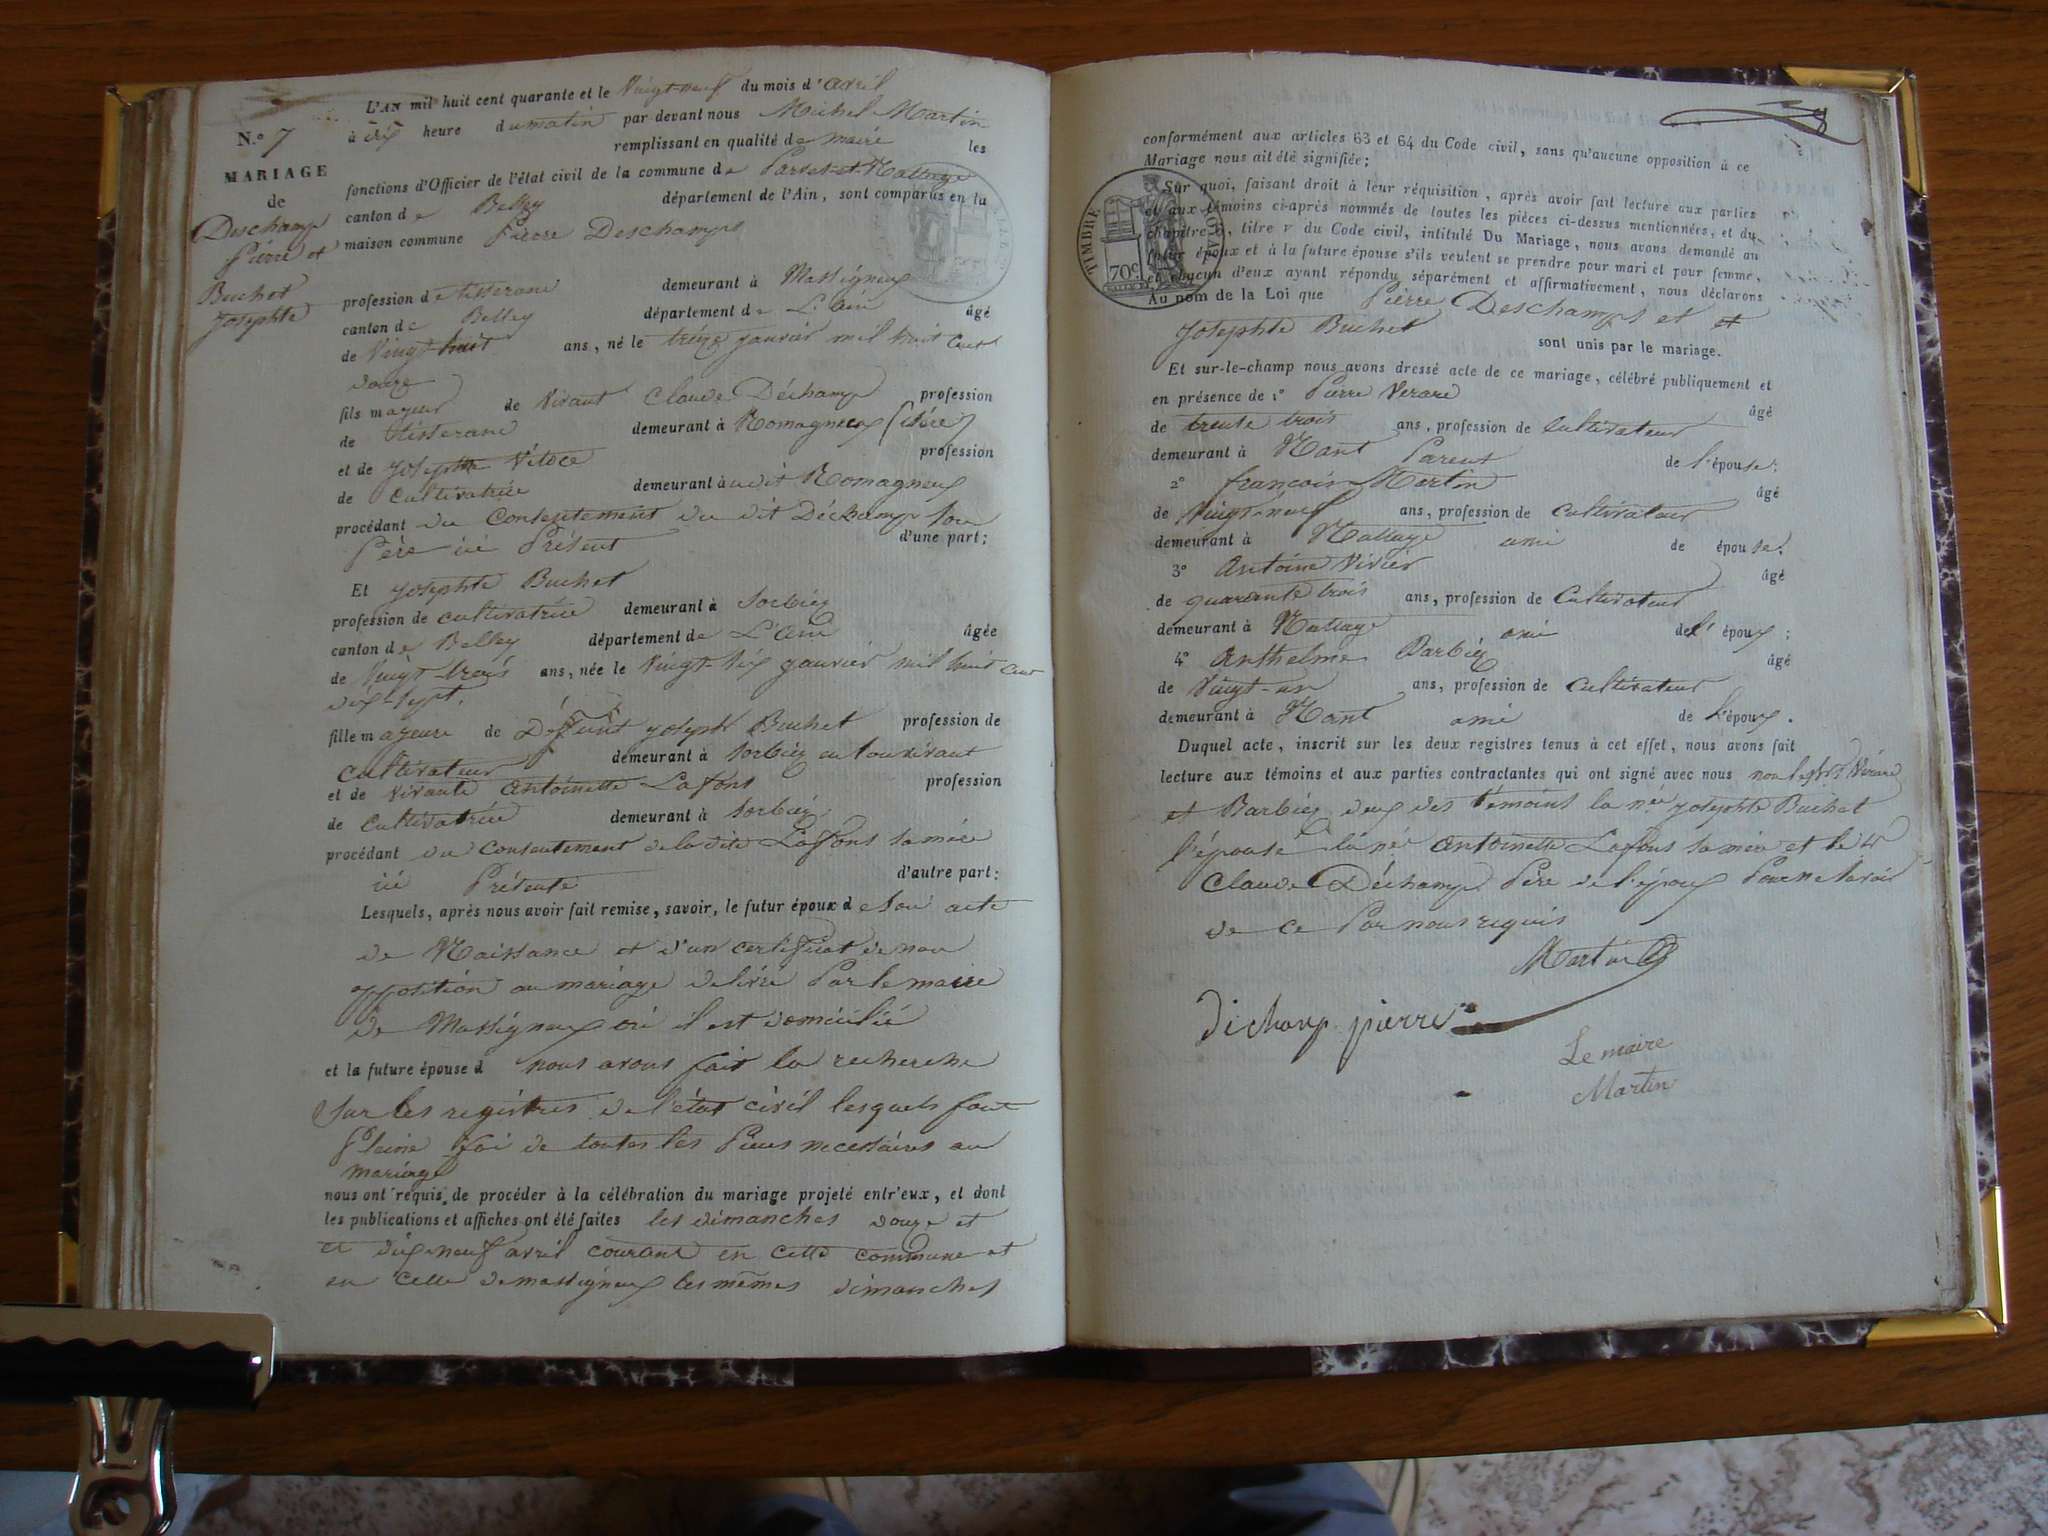 N.o 7
MARIAGE
de
Deschamp
Pierre et
Buchet
Josephte
L'AN mil huit cent quarante et le Vingt-neuf du mois d'avril
à dix heure du matin par devant nous Michel Martin
remplissant en qualité de maire les
fonctions d'Officier de l'état civil de la commune de Parves-et-Nattage
canton de Belley département de l'Ain, sont comparus en la
maison commune Pierre Deschamps
profession de tisserand demeurant à Massigneux
canton de Belley département de L'ain âgé
de Vingt-huit ans, né le treize janvier mil huit cent
douze
fils majeur de Vivant Claude Déchamp profession
de tisserand demeurant à Romagneux (isère)
et de Josephte Véloce profession
de cultivatrice demeurant audit Romagneux
procédant du Consentement du dit Déchamp son
Père ici Présent d'une part;
Et Josephte Buchet
profession de cultivatrice demeurant à Sorbiez
canton de Belley département de L'ain âgée
de Vingt-trois ans, née le Vingt-six janvier mil huit cent
dix-sept.
fille majeure de Défunt joseph Buchet profession de
cultivateur demeurant à Sorbiez en son vivant
et de vivante antoinette Lafons profession
de cultivatrice demeurant à Sorbiez
procédant du consentement de la dite Lafons sa mère
ici Présente d'autre part:
Lesquels, après nous avoir fait remise, savoir, le futur époux de son acte
de Naissance et d'un certificat de non
opposition au mariage delivré Par le maire
de Massigneux où il est domicilié
et la future épouse d nous avons fait la recherche
sur les registres de l'état civil lesquels font
Pleine foi de toutes les Pieces necessaires au
mariage
nous ont requis de procéder à la célébration du mariage projeté entr'eux, et dont
les publications et affiches ont été faites les dimanches douze et
et dix-neuf avril courant en cette commune et
en celle de massigneux les mêmes dimanches
conformément aux articles 63 et 64 du Code civil, sans qu'aucune opposition à ce
Mariage nous ait été signifiée;
Sur quoi, faisant droit à leur réquisition, après avoir fait lecture aux parties
et aux témoins ci-après nommés de toutes les pièces ci-dessus mentionnées, et du
chapitre 6, titre V du Code civil, intitulé Du Mariage, nous avons demandé au
futur époux et à la future épouse s'ils veulent se prendre pour mari et pour femme,
et chacun d'eux ayant répondu séparément et affirmativement, nous déclarons
TIMBRE ROYAL
70c
Au nom de la Loi que Pierre Deschamps et et
Josephte Buchet sont unis par le mariage.
Et sur-le-champ nous avons dressé acte de ce mariage, célébré publiquement et
en présence de 1o Pierre Verare âgé
de trente trois ans, profession de Cultivateur
demeurant à Nant Parent de l'épouse;
2o françois Martin âgé
de Vingt-neuf ans, profession de cultivateur
demeurant à Nattage ami de épouse.
3o Antoine Vivier âgé
de quarante trois ans, profession de Cultivateur
demeurant à Nattage ami de l'époux;
4o Anthelme Barbiez âgé
de Vingt-un ans, profession de cultivateur
demeurant à Nant ami de l'époux.
Duquel acte, inscrit sur les deux registres tenus à cet effet, nous avons fait
lecture aux témoins et aux parties contractantes qui ont signé avec nous non lesdits Verare
et Barbiez deux des témoins la née josephte Buchet
l'épouse la née antoinette Lafons sa mère et le dt
Claude Déchamps Père de l'époux Pour ne savoir
de ce Par nous requis
Martin
dichamp pierre
Le maire
Martin